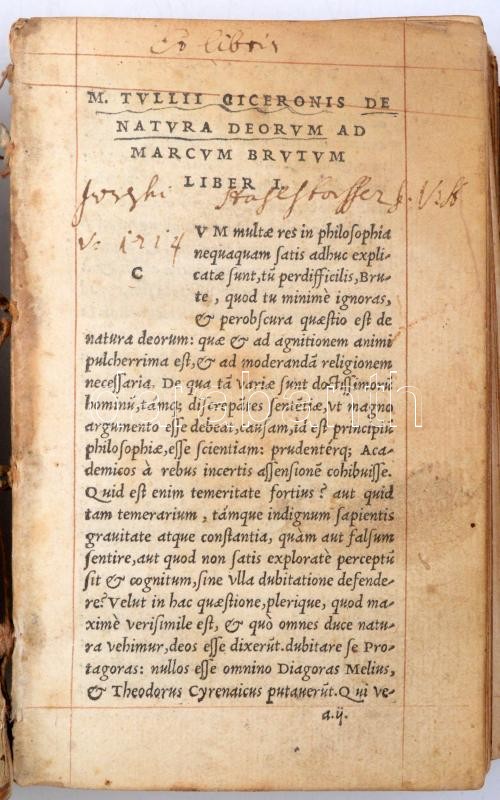 Ex libris
M. TVLLII CICERONIS DE
NATVRA DEORVM AD
MARCVM BRVTVM
LIBER I.
V. 1714
C
VM multæ res in philosophia
nequaquam satis adhuc expli-
catæ sunt, tū perdifficilis, Bru-
te, quod tu minimè ignoras,
& perobscura quæstio est de
natura deorum: quæ & ad agnitionem animi
pulcherrima est, & ad moderandā religionem
necessaria. De qua tā variæ sunt doctissimorū
hominū, tāmq; discrepātes sentētiæ, vt magno
argumento esse debeat, causam, id est principiū
philosophiæ, esse scientiam: prudentérq; Aca-
demicos à rebus incertis assensionē cohibuisse.
Quid est enim temeritate fortius? aut quid
tam temerarium, támque indignum sapientis
grauitate atque constantia, quàm aut falsum
sentire, aut quod non satis exploratè perceptū
sit & cognitum, sine vlla dubitatione defende-
re? Velut in hac quæstione, plerique, quod ma-
ximè verisimile est, & quò omnes duce natu-
ra vehimur, deos esse dixerūt. dubitare se Pro-
tagoras: nullos esse omnino Diagoras Melius,
& Theodorus Cyrenaicus putauerūt. Qui ve-
a.ij.